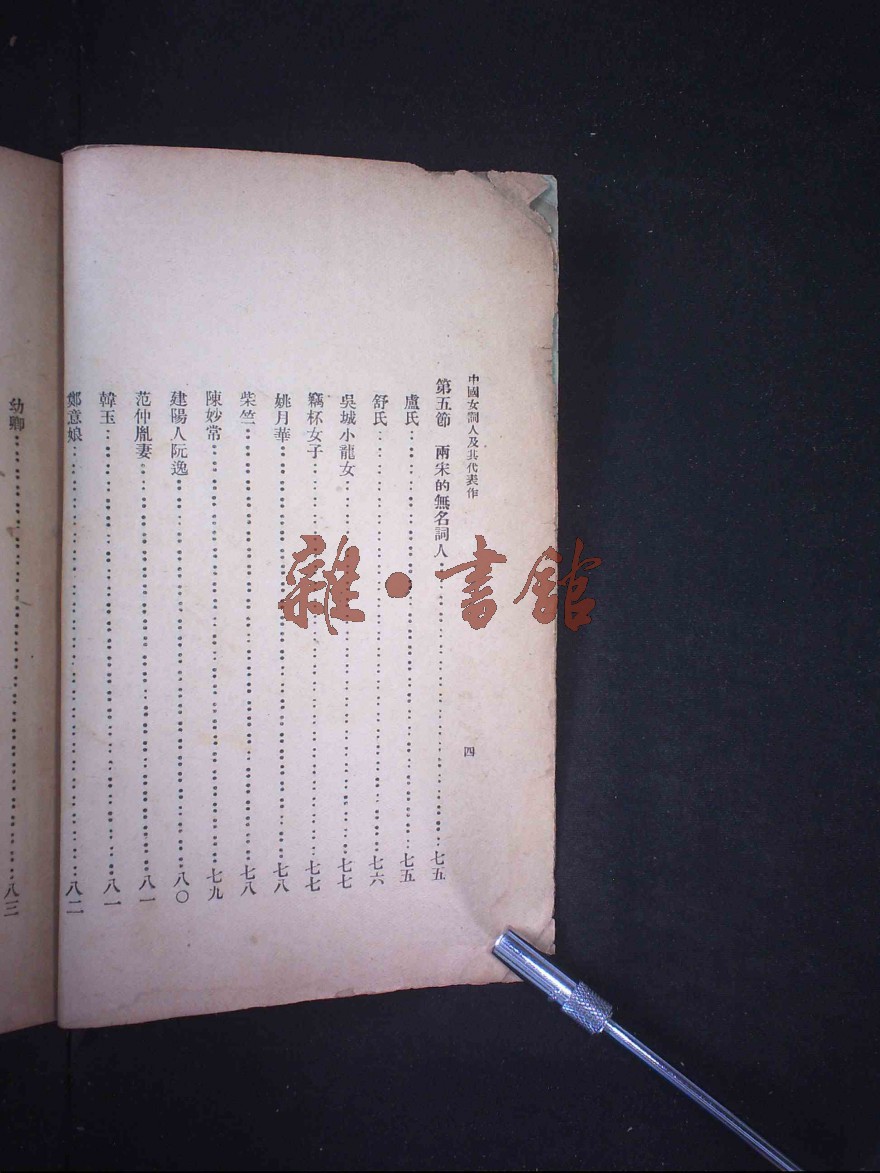 中國女詞人及其代表作
四
第五節　兩宋的無名詞人……七五
盧氏……七五
舒氏……七六
吳城小龍女……七七
竊杯女子……七七
姚月華……七八
柴竺……七八
陳妙常……七九
建陽人阮逸……八〇
范仲胤妻……八一
韓玉……八一
鄭意娘……八二
幼卿……八三
雜·書館